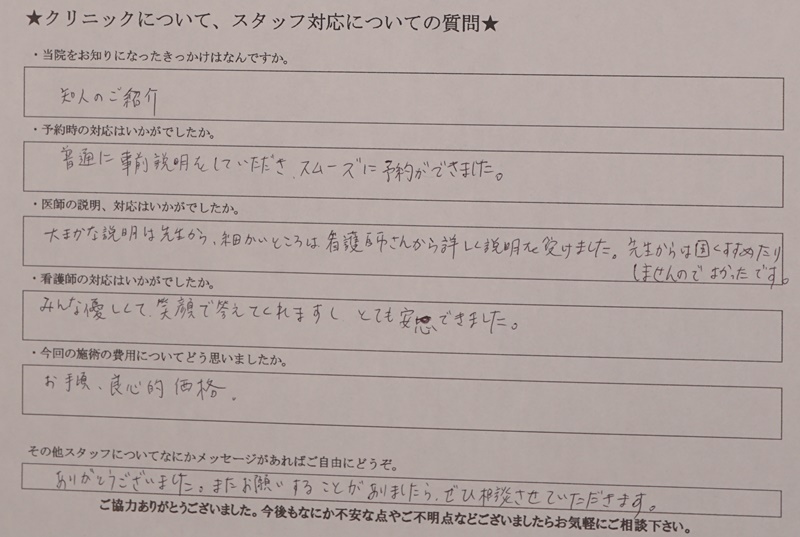 ★クリニックについて、スタッフ対応についての質問★
・当院をお知りになったきっかけはなんですか。
知人のご紹介
・予約時の対応はいかがでしたか。
普通に事前説明をしていただき、スムーズに予約ができました。
・医師の説明、対応はいかがでしたか。
大まかな説明は先生から、細かいところは看護師さんから詳しく説明を受けました。先生からは固くすすめたり
しませんのでよかったです。
・看護師の対応はいかがでしたか。
みんな優しくて、笑顔で答えてくれますし、とても安心できました。
・今回の施術の費用についてどう思いましたか。
お手頃、良心的価格。
その他スタッフについてなにかメッセージがあればご自由にどうぞ。
ありがとうございました。またお願いすることがありましたら、ぜひ相談させていただきます。
ご協力ありがとうございました。今後もなにか不安な点やご不明点などございましたらお気軽にご相談下さい。